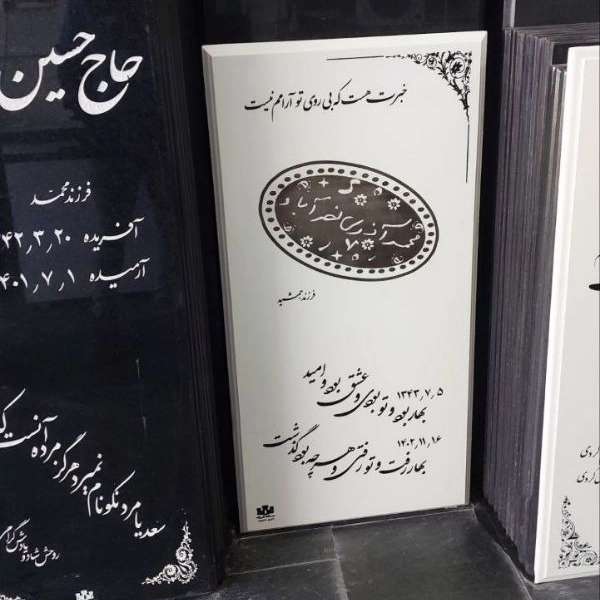 حاج حسین
فرزند محمد
آفریده ۴۲٫۳٫۲۰
آرمیده ۴۰۱٫۷٫۱
سعدیا مرد نکونام نمیرد هرگز
مرده آنست ک
روحش شاد و یادش گرامی
خبرت هست که بی روی تو آرامم نیست
محمد آذری نصرآباد
فرزند جمشید
۱۳۴۳٫۷٫۵
بهار بود و تو بودی و عشق بود و امید
۱۴۰۲٫۱۱٫۱۶
بهار رفت و تو رفتی و هر چه بود گذشت